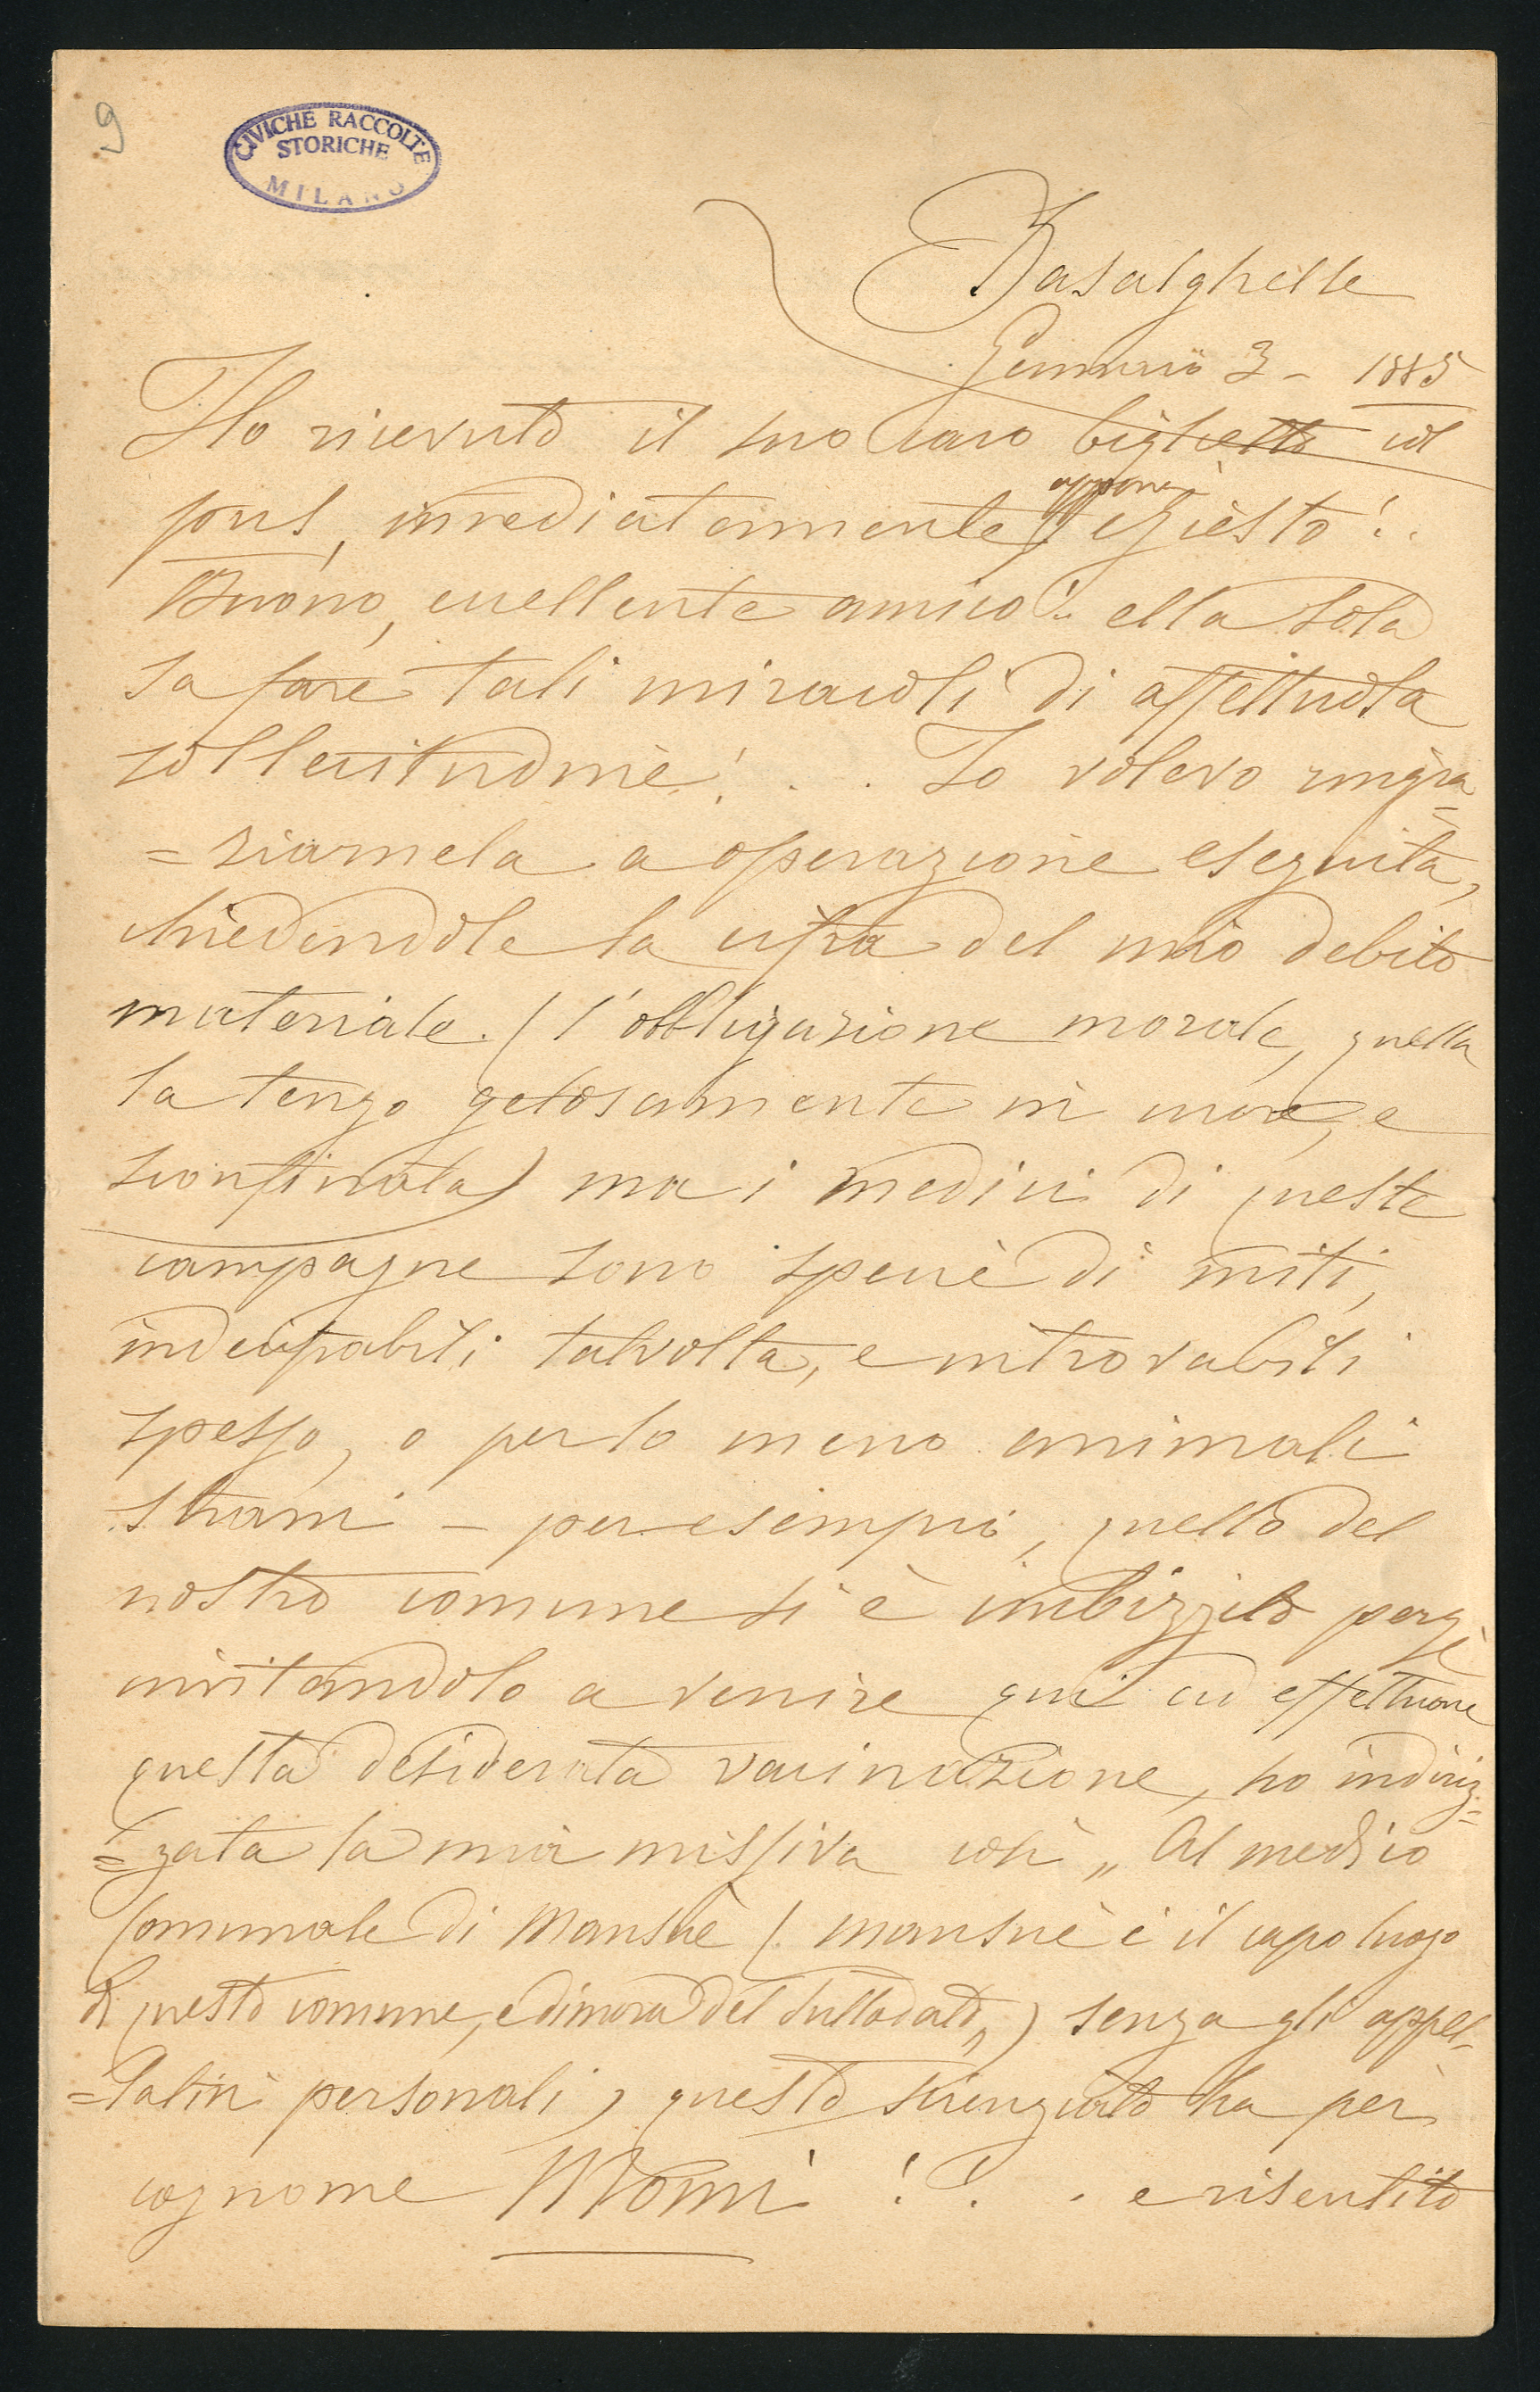 9
CIVICHE RACCOLTE
STORICHE
MILANO
Basalghelle
Gennaio 3 - 1885
Ho ricevuto il suo caro biglietto col
pus, immediatamente appena chiesto!.
Buono, eccellente amico!.. ella sola
sa fare tali miracoli di affettuosa
sollecitudine! . . Io volevo ringra=
=ziarnela a operazione eseguita,
chiedendole la cifra del mio debito
materiale. (l'obbligazione morale, quella
la tengo gelosamente in cuore, e
sconfinata) ma i medici di queste
campagne sono specie di miti,
indecifrabili talvolta, e introvabili
spesso, o per lo meno animali
strani - per esempio, quello del
nostro comune si è imbizzito perchè
invitandolo a venire qui ad effettuare
questa desiderata vaccinazione, ho indiriz=
=zata la mia missiva così „ Al medico
Comunale di Mansuè (Mansuè è il capo luogo
di questo comune, e dimora del sullodato„) senza gli appel-
=lativi personali, questo scienziato ha per
cognome Momi !?. . e risentito